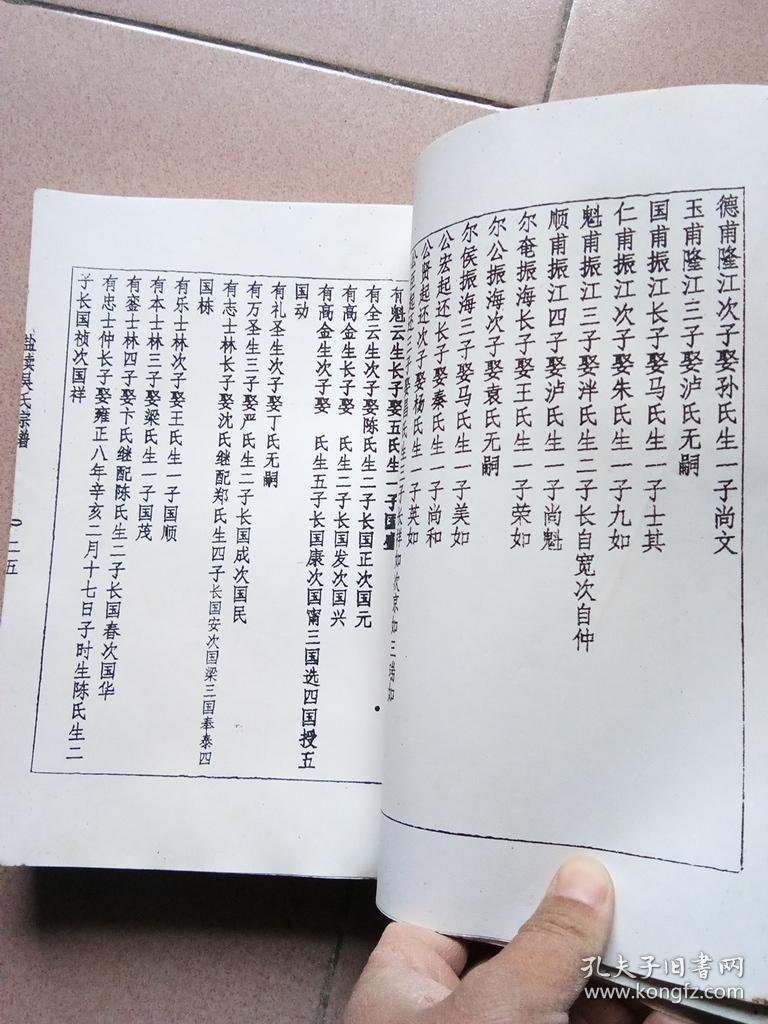 德甫隆江次子娶孙氏生一子尚文
玉甫隆江三子娶泸氏无嗣
国甫振江长子娶马氏生一子士其
仁甫振江次子娶朱氏生一子九如
魁甫振江三子娶泮氏生二子长自宽次自仲
顺甫振江四子娶泸氏生一子尚魁
尔奄振海长子娶王氏生一子荣如
尔公振海次子娶袁氏无嗣
尔侯振海三子娶马氏生一子美如
公宏起还长子娶秦氏生一子尚和
公旸起还次子娶杨氏生一子英如
起还三子娶昌氏生三子长祥如次京如三瑞如
有魁云生长子娶五氏生一子国
有全云生次子娶陈氏生二子长国正次国元
有高金生长子娶 氏生二子长国发次国兴
有高金生次子娶 氏生五子长国康次国甯三国选四国授五
国动
有礼圣生次子娶丁氏无嗣
有万圣生三子娶严氏生二子长国成次国民
有志士林长子娶沈氏继配郑氏生四子长国安次国梁三国奉泰四
国栋
有乐士林次子娶王氏生一子国顺
有本士林三子娶梁氏生一子国茂
有銮士林四子娶卞氏继配陈氏生二子长国春次国华
有忠士仲长子娶雍正八年辛亥二月十七日子时生陈氏生二
子长国祯次国祥
盐渎吴氏宗谱
二五
孔夫子旧书网
www.kongfz.com